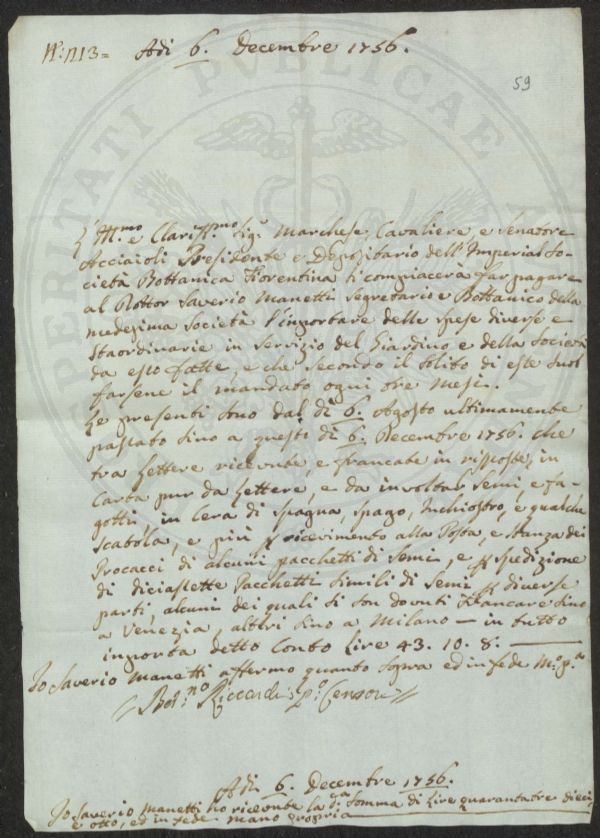 N.º 1113 = Adi 6. Decembre 1756.
59
L'Ill.mo e Clariss.mo Sig.r Marchese, Cavaliere e Senatore
Acciaioli Presidente e Depositario dell'Imperial So-
cietà Bottanica Fiorentina si compiacerà far pagare
al Dottor Saverio Manetti Segretario e Bottanico della
medezima Società l'importare delle spese diverse e
straordinarie in servizio del Giardino e della Società
da esso fatte, e che secondo il solito di este suol
farsene il mandato ogni tre mesi.
Le presenti sono dal dì 6. Agosto ultimamente
passato sino a questo dì 6. Decembre 1756. che
tra Lettere ricevute, e francate in risposte, in
Carta pur da Lettere, e da involtar Semi, e fa-
gotti, in Cera di Spagna, spago, Inchiostro, e qualche
scatola, e più p ricevimento alla Posta, e stanza dei
Procacci di alcuni pacchetti di Semi, e p spedizione
di diciassette Pacchetti simili di Semi p diverse
parti, alcuni dei quali si son dovuti francare sino
a Venezia, altri sino a Milano — in tutto
importa detto Conto Lire 43. 10. 8. —
Io Saverio Manetti affermo quanto sopra ed in fede M.o p.a
Riccardi P.o Censore
Adi 6. Decembre 1756.
Io Saverio Manetti ho ricevute la d.a Somma di Lire quarantatre dieci,
e otto, ed in fede mano propria
PERITATI PVBLICAE